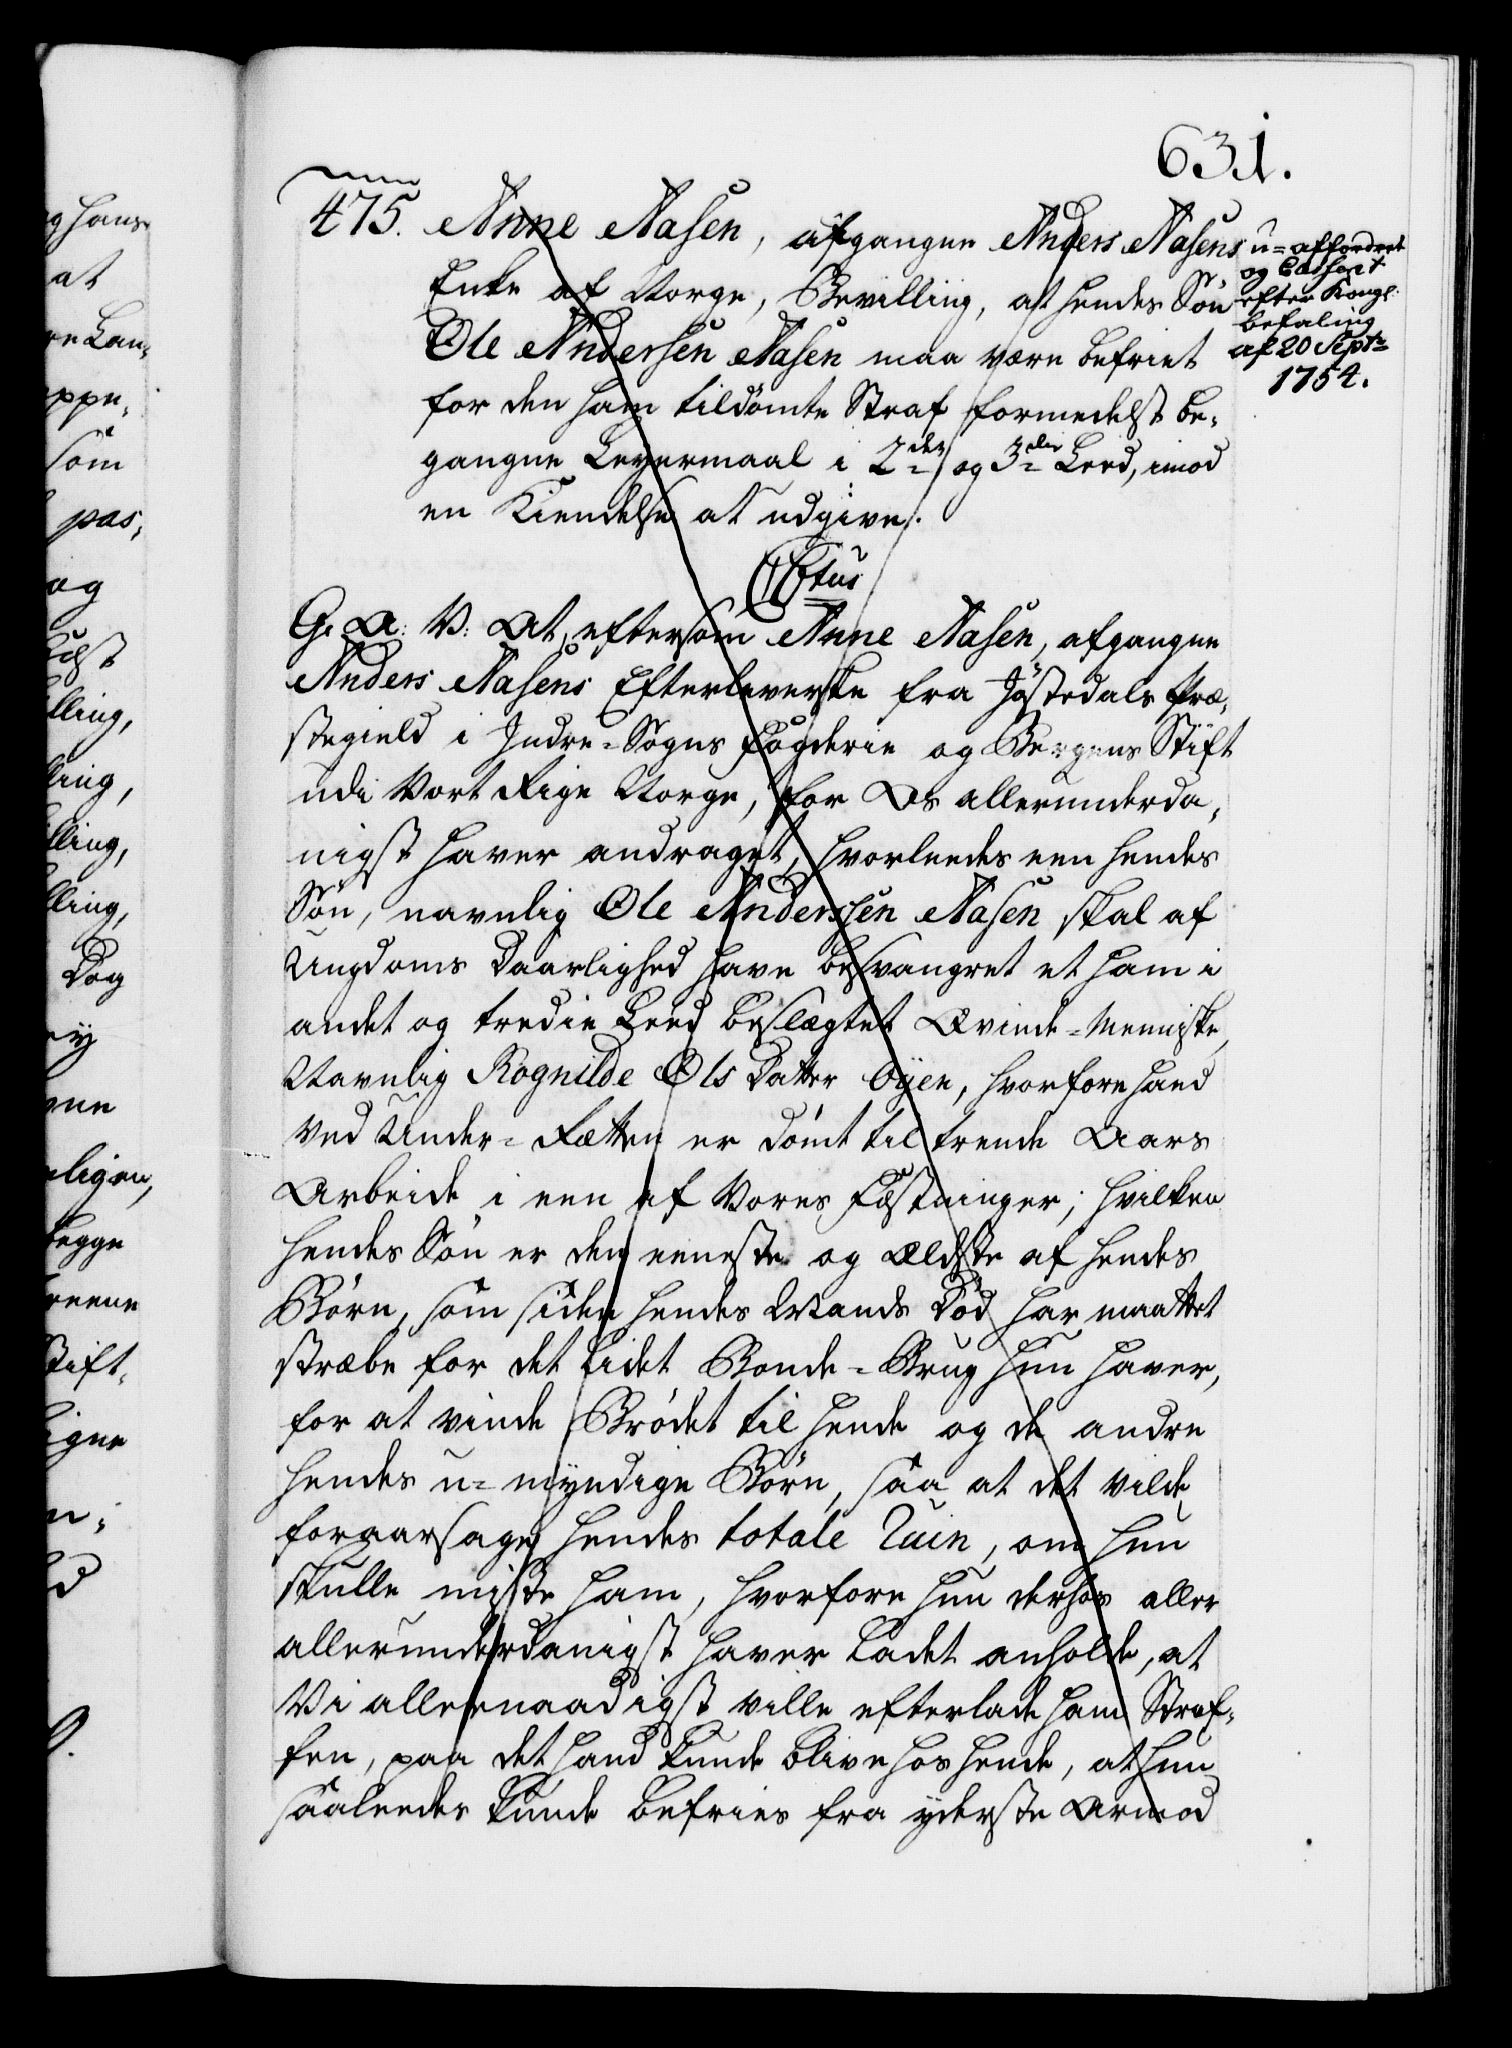 631.
475. Anne Nasen, afgangne Anders Nasens
Enke af Norge, Bevilling, at hendes Søn
Ole Andersen Nasen maa være befriet
for den ham tildömte Straf formedelst be-
gangne Leyermaal i 2den og 3die Leed, imod
en Kiendelse at udgive.
u-affordret
og Casseret
efter Kongl:
befaling
af 20 Sept:
1754.
CStus
G. A: V: At, eftersom Anne Nasen, afgangne
Anders Nasens Efterleverske fra Jöstedals Præ-
stegield i Indre-Sogns Fogderie og Bergens Stift
udi Vort Rige Norge, for Os allerunderda-
nigst haver andraget, hvorleedes een hendes
Sön, navnlig Ole Anderssen Nasen skal af
Ungdoms Daarlighed have besvangret et ham i
andet og tredie Leed beslægtet Qvinde-Menniske,
Navnlig Rognilde Ols Datter Öyen, hvorfore hand
ved Under-Retten er dömt til trende Aars
Arbeide i een af Vores Fæstninger; hvilken
hendes Sön er den eeneste og Ældste af hendes
Börn, som siden hendes Mands Död har maattet
stræbe for det lidet Bonde-Brug hun haver,
for at vinde Brödet til hende og de andre
hendes u-myndige Börn, saa at det vilde
foraarsage hendes totale Ruin, om hun
skulle miste ham, hvorfore hun derhos aller
allerunderdanigst haver ladet anholde, at
Vi allernaadigst ville efterlade ham Straf-
fen, paa det hand kunde blive hos hende, at hun
saaleedes kunde befries fra yderste Armod
og hans
at
re Lan-
oppe,
som
pas,
og
lling,
ling,
lling,
lling,
Dog
ey
gne
eligen,
begge
reene
Stift,
igne
n;
d
9.